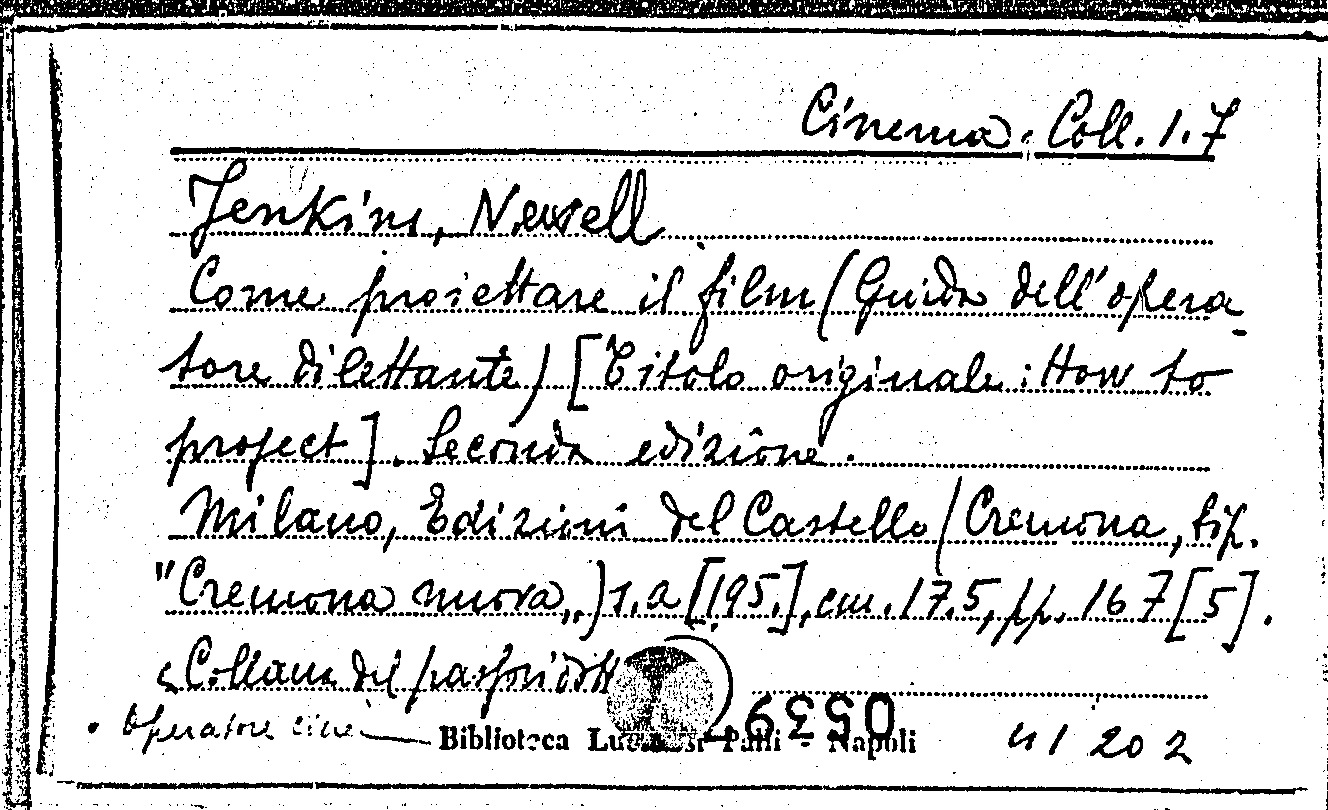 Cinema. Coll. 1.7
Jenkins, Newell
Come proiettare il film (Guida dell'opera-
tore dilettante) [Titolo originale: How to
project]. Seconda edizione.
Milano, Edizioni del Castello (Cremona, tip.
"Cremona nuova„) s.a [195.], cm. 17.5, pp. 167 [5].
Collana del
Operatore cine
Biblioteca Lucchesi Palli - Napoli
0539
41202